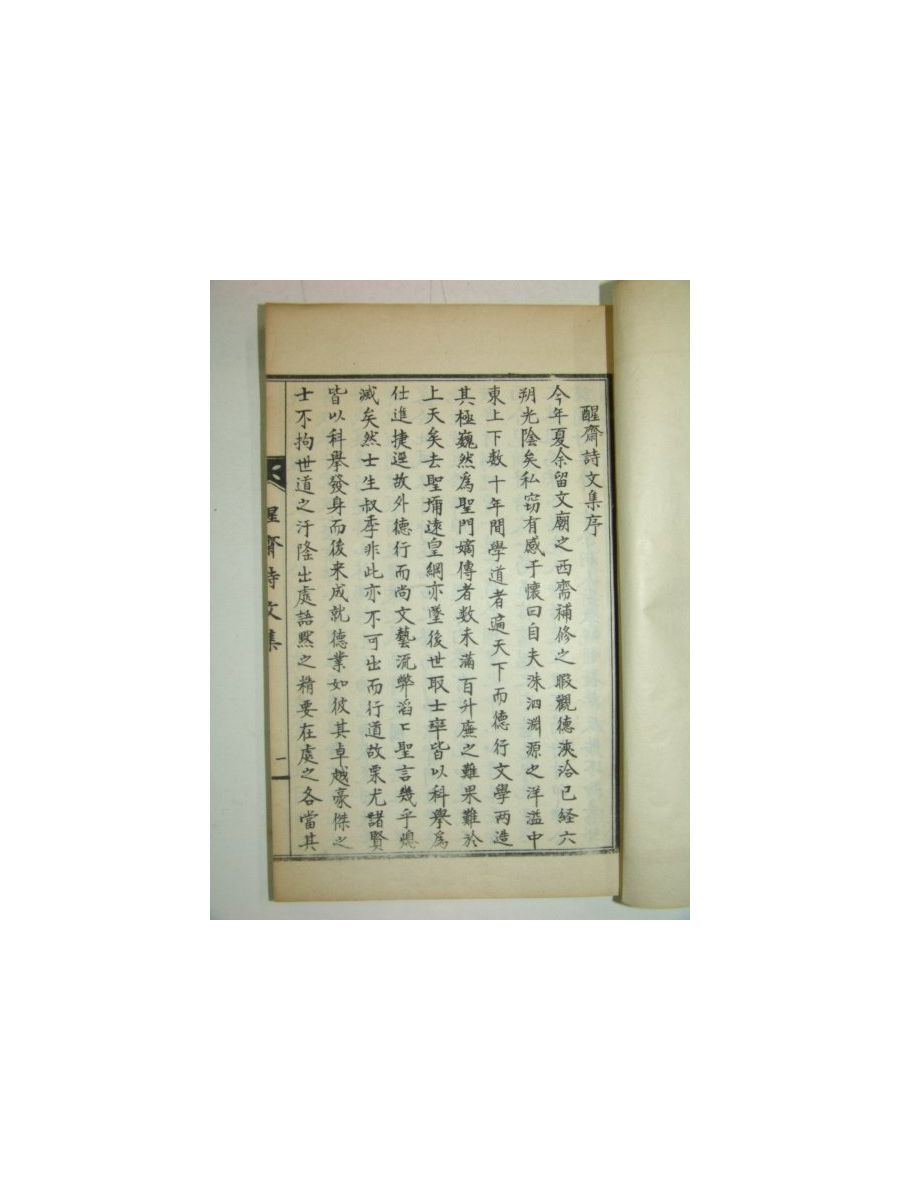 醒齋詩文集序
今年夏余留文廟之西齋補修之暇觀德浹洽已経六
朔光陰矣私窃有感于懷曰自夫洙泗淵源之洋溢中
東上下数十年間學道者遍天下而德行文學两造
其極巍然爲聖門嫡傳者数未滿百升廡之難果難於
上天矣去聖彌遠皇綱亦墜後世取士率皆以科擧爲
仕進捷逕故外德行而尚文藝流弊滔〻聖言幾乎熄
滅矣然士生叔季非此亦不可出而行道故栗尤諸賢
皆以科擧發身而後来成就德業如彼其卓越豪傑之
士不拘世道之汙隆出處語黙之精要在處之各當其
醒齋詩文集
一